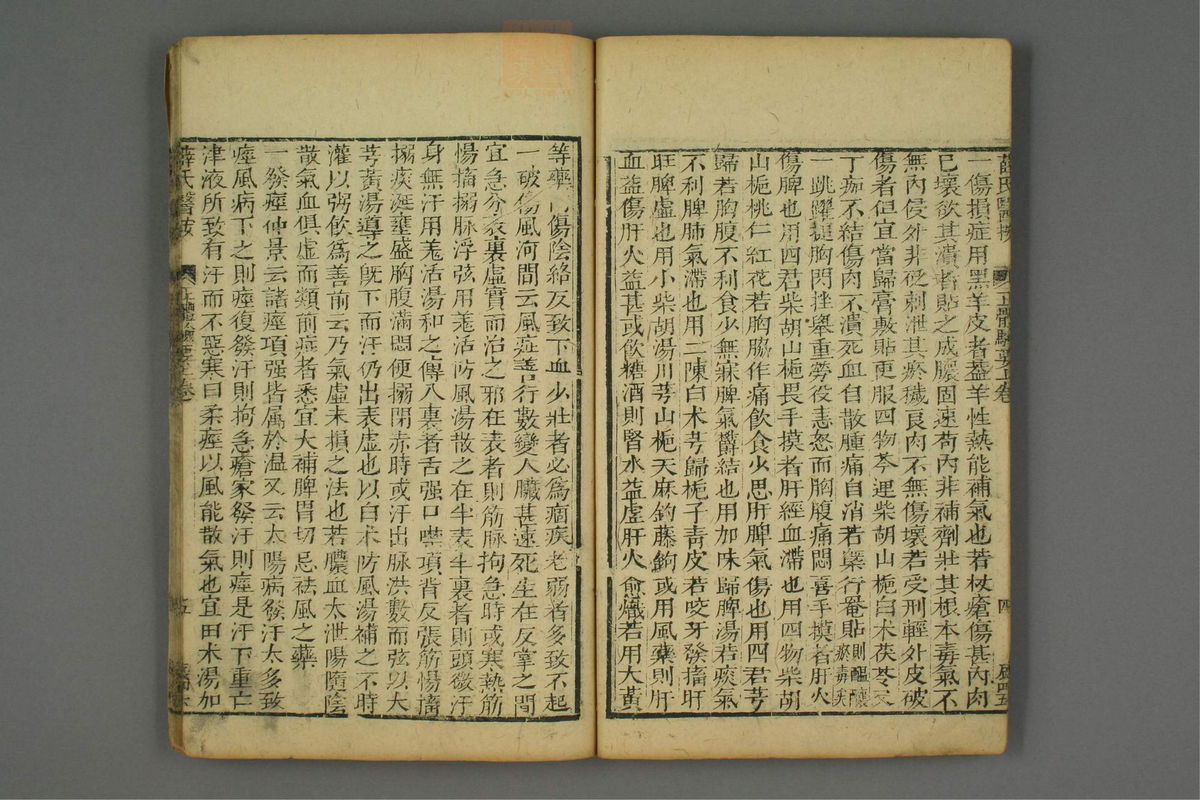 薛氏醫按 正體類要上卷 四
一傷損症用黑羊皮者蓋羊性熱能補氣也若杖瘡傷甚內肉
已壞欲其潰者貼之成膿固速苟內非補劑壯其根本毒氣不
無內侵外非砭刺泄其瘀穢良肉不無傷壞若受刑輕外皮破
傷者但宜當歸膏敷貼更服四物芩連柴胡山梔白朮茯苓又
丁痂不結傷肉不潰死血自散腫痛自消若槩行罨貼則醞釀瘀毒矣
一跳躍搥胸閃挫舉重勞役恚怒而胸腹痛悶喜手摸者肝火
傷脾也用四君柴胡山梔畏手摸者肝經血滯也用四物柴胡
山梔桃仁紅花若胸脇作痛飲食少思肝脾氣傷也用四君芎
歸若胸腹不利食少無寐脾氣鬱結也用加味歸脾湯若痰氣
不利脾肺氣滯也用二陳白朮芎歸梔子青皮若咬牙發搐肝
旺脾虛也用小柴胡湯川芎山梔天麻鈎藤鉤或用風藥則肝
血益傷肝火益甚或飲糖酒則腎水益虛肝火愈熾若用大黃
等藥內傷陰絡反致下血少壯者必為痼疾老弱者多致不起
一破傷風河間云風症善行數變入臟甚速死生在反掌之間
宜急分表裏虛實而治之邪在表者則筋脉拘急時或寒熱筋
惕搐搦脉浮弦用羗活防風湯散之在半表半裏者則頭微汗
身無汗用羗活湯和之傳入裏者舌强口噤項背反張筋惕搐
搦痰涎壅盛胸腹滿悶便溺閉赤時或汗出脉洪數而弦以大
芎黃湯導之既下而汗仍出表虛也以白朮防風湯補之不時
灌以粥飲為善前云乃氣虛未損之法也若膿血大泄陽隨陰
散氣血俱虛而類前症者悉宜大補脾胃切忌祛風之藥
一發痙仲景云諸痙項强皆属於溫又云太陽病發汗太多致
痙風病下之則痙復發汗則拘急瘡家發汗則痙是汗下重亡
津液所致有汗而不惡寒曰柔痙以風能散氣也宜白朮湯加
薛氏醫按 正體類要上卷 五